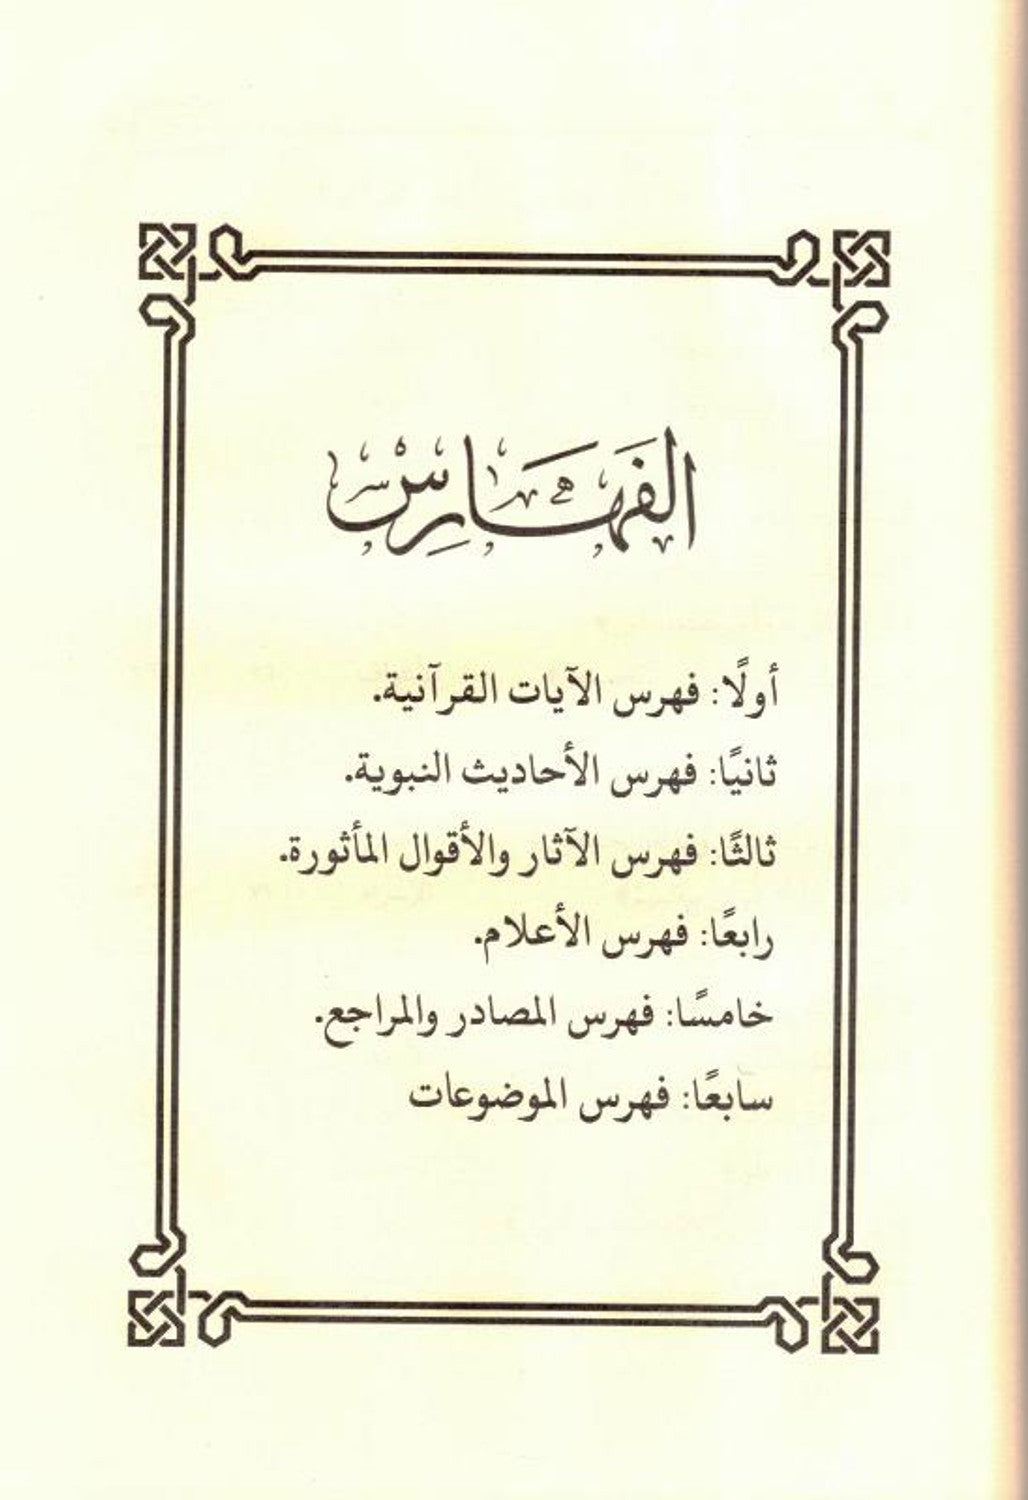 الفهارس
أولًا: فهرس الآيات القرآنية.
ثانيًا: فهرس الأحاديث النبوية.
ثالثًا: فهرس الآثار والأقوال المأثورة.
رابعًا: فهرس الأعلام.
خامسًا: فهرس المصادر والمراجع.
سابعًا: فهرس الموضوعات